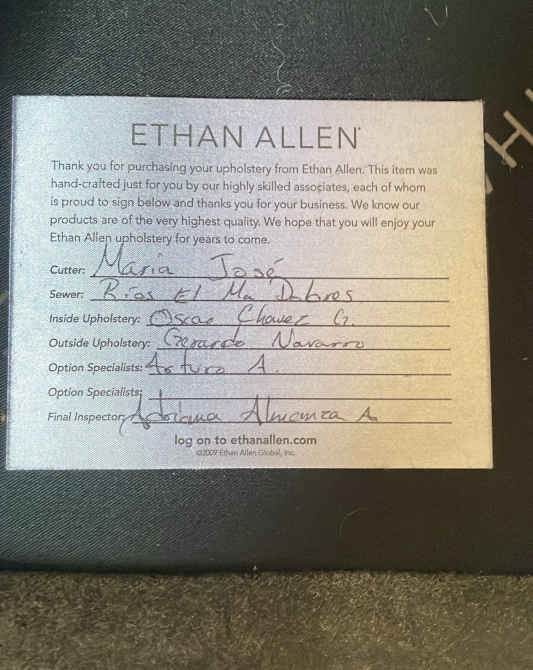 ETHAN ALLEN
Thank you for purchasing your upholstery from Ethan Allen. This item was
hand-crafted just for you by our highly skilled associates, each of whom
is proud to sign below and thanks you for your business. We know our
products are of the very highest quality. We hope that you will enjoy your
Ethan Allen upholstery for years to come.
Cutter: Maria José
Sewer: Rios El Ma Dolores
Inside Upholstery: Oscar Chavez G.
Outside Upholstery: Gerardo Navarro
Option Specialists: Arturo A.
Option Specialists:
Final Inspector: Adriana Almanza A
log on to ethanallen.com
©2009 Ethan Allen Global, Inc.